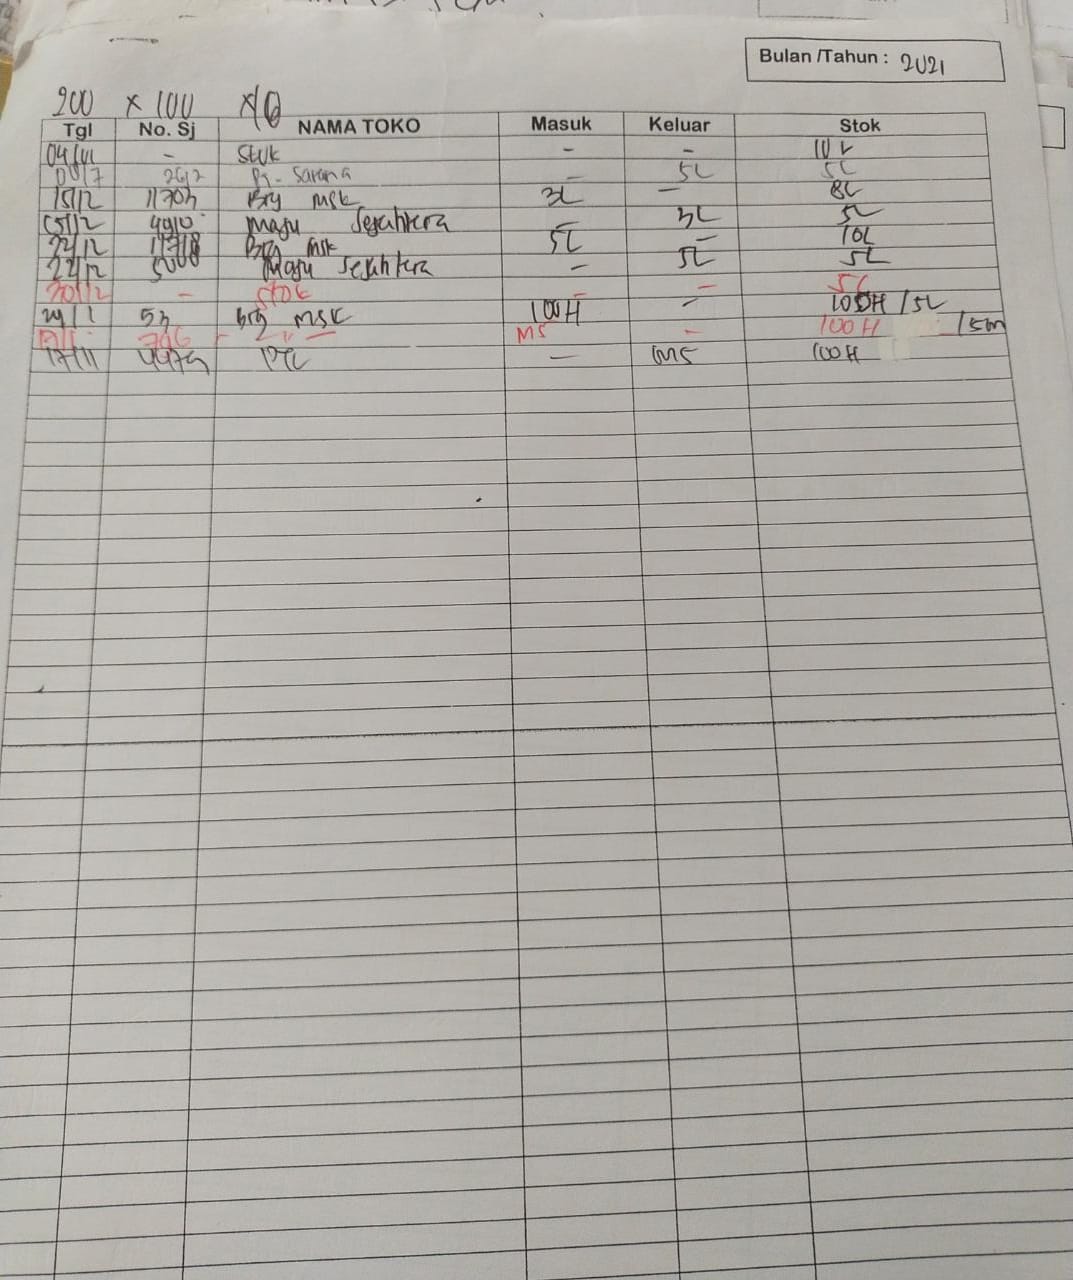 Bulan /Tahun : 2021
200 x 100 x 10
Tgl No. Sj NAMA TOKO Masuk Keluar Stok
- Stok - - 10L
2612 Pj. Sarana - 5L 5L
15/12 11703 Brg msk 3L - 8L
15/12 4910 Maju Sejahtera 3L 5L
22/12 Brg msk 5L - 10L
22/12 5000 Maju Sejahtera - 5L 5L
30/12 - Stok - - 5L
29/1 53 brg msk 100H - 100H /5L
796 - M5 - 100H /5m
17/11 4479 - M5 100H